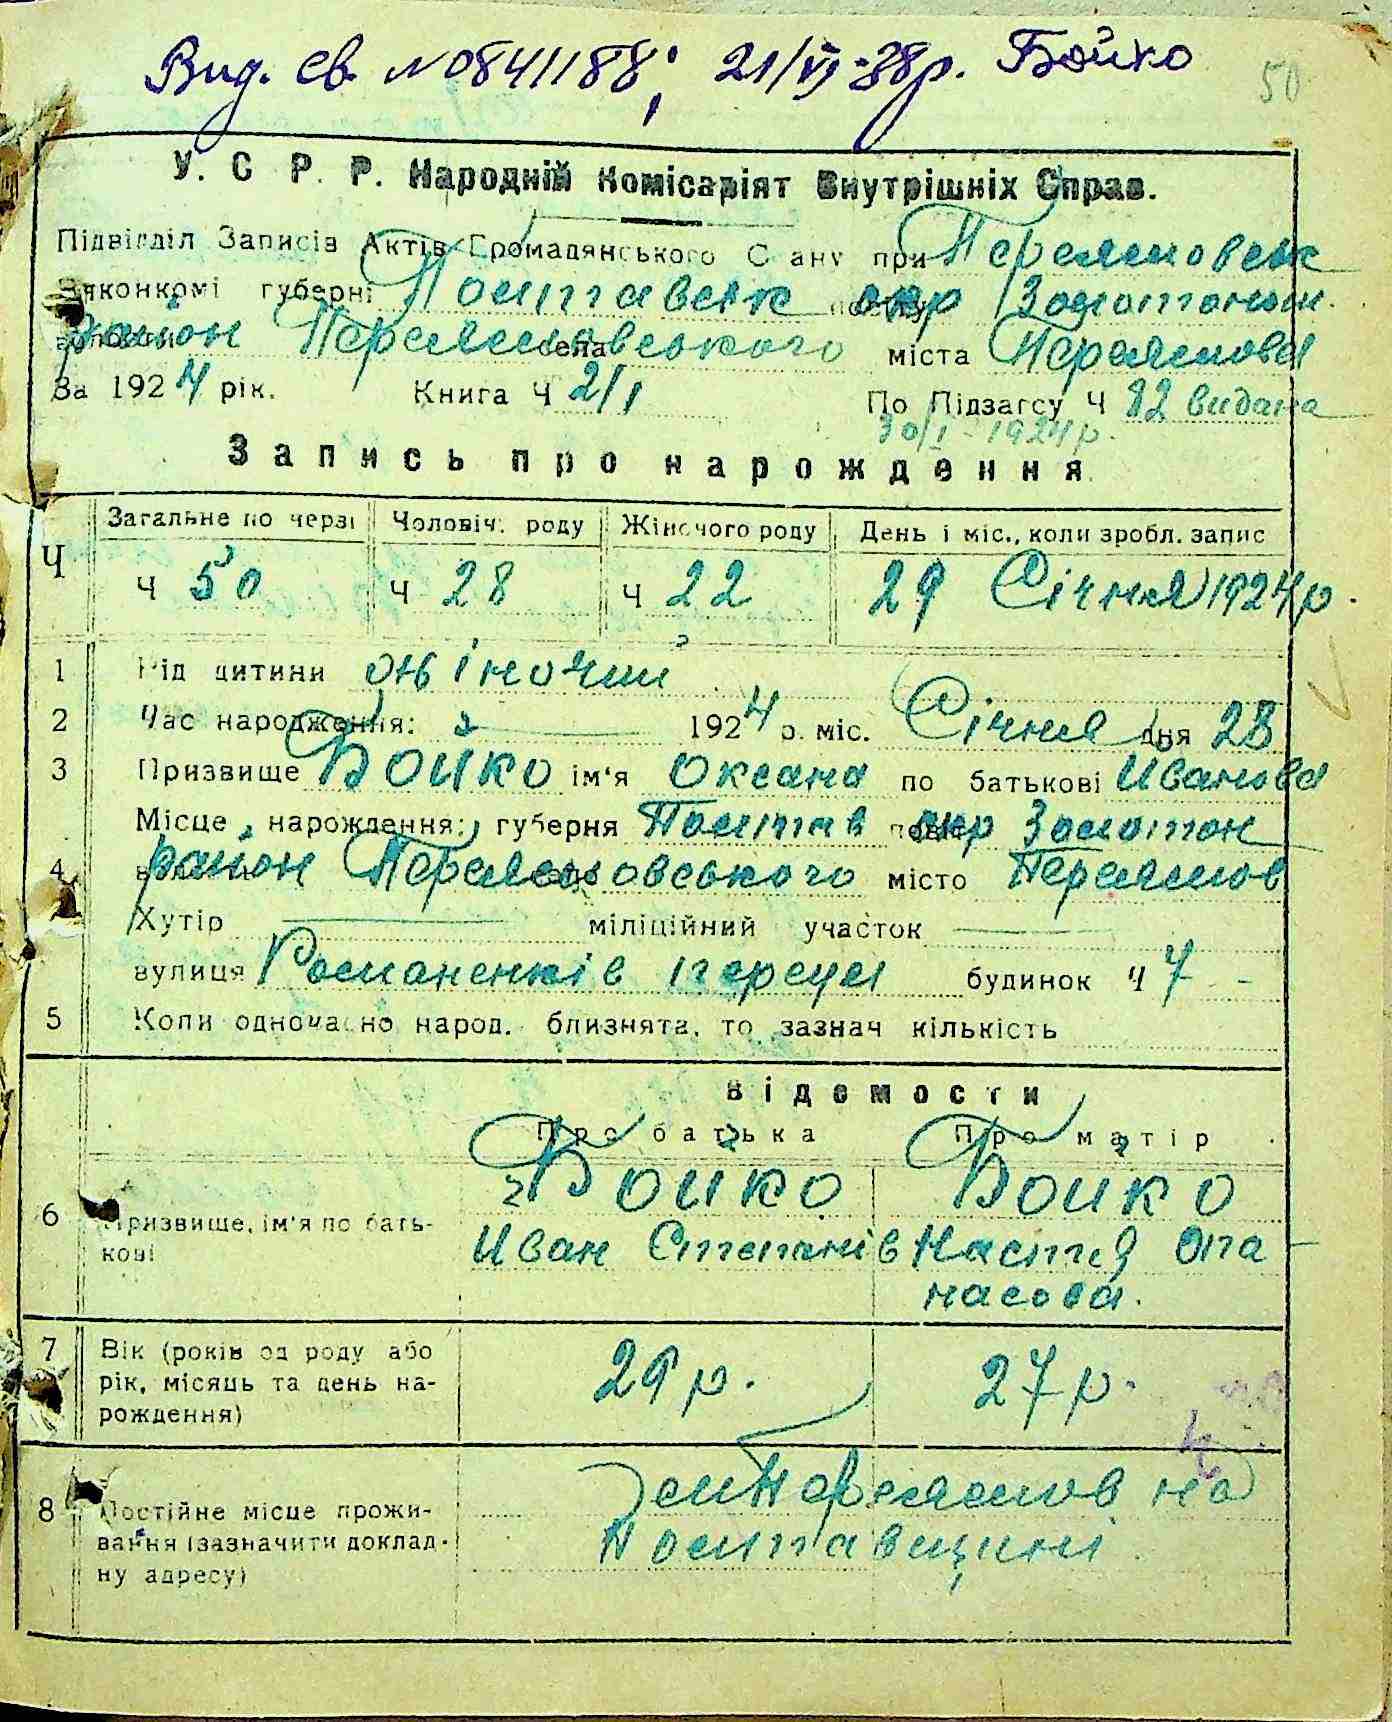 Вид. св. № 0841188; 21/VI-38р. Бойко
50
У. С Р. Р. Народній Комісаріят Внутрішніх Справ.
Підвідділ Записів Актів Громадянського Стану при Переяславськ
Виконкомі губерні Полтавськ окр Золотоньськ.
район Переяславського міста Переяслова
За 1924 рік. Книга Ч 2/1 По Підзагсу Ч 82 видана
30/I - 1924 р.
Запись про нарождення
Ч Загальне по черзі Чоловіч. роду Жіночого роду День і міс., коли зробл. запис
Ч 50 Ч 28 Ч 22 29 Січня 1924 р.
1 Рід дитини жіночий
2 Час народження: 1924 р. міс. Січня дня 28
3 Призвище Бойко ім'я Оксана по батькові Иванова
Місце нарождення: губерня Полтав окр Золотон
4 район Переяславського місто Переяслов
Хутір міліційний участок
вулиця Романенків переул будинок Ч 7
5 Коли одночасно народ. близнята, то зазнач кількість
Відомости
Про батька Про матір
6 Призвище, ім'я по бать-
кові
Бойко Бойко
Иван Степанів Настя Опа
насова.
7 Вік (років од роду або
рік, місяць та день на-
рождення)
29 р. 27 р.
8 Постійне місце прожи-
вання (зазначити доклад-
ну адресу)
Переяслов на
Полтавщині